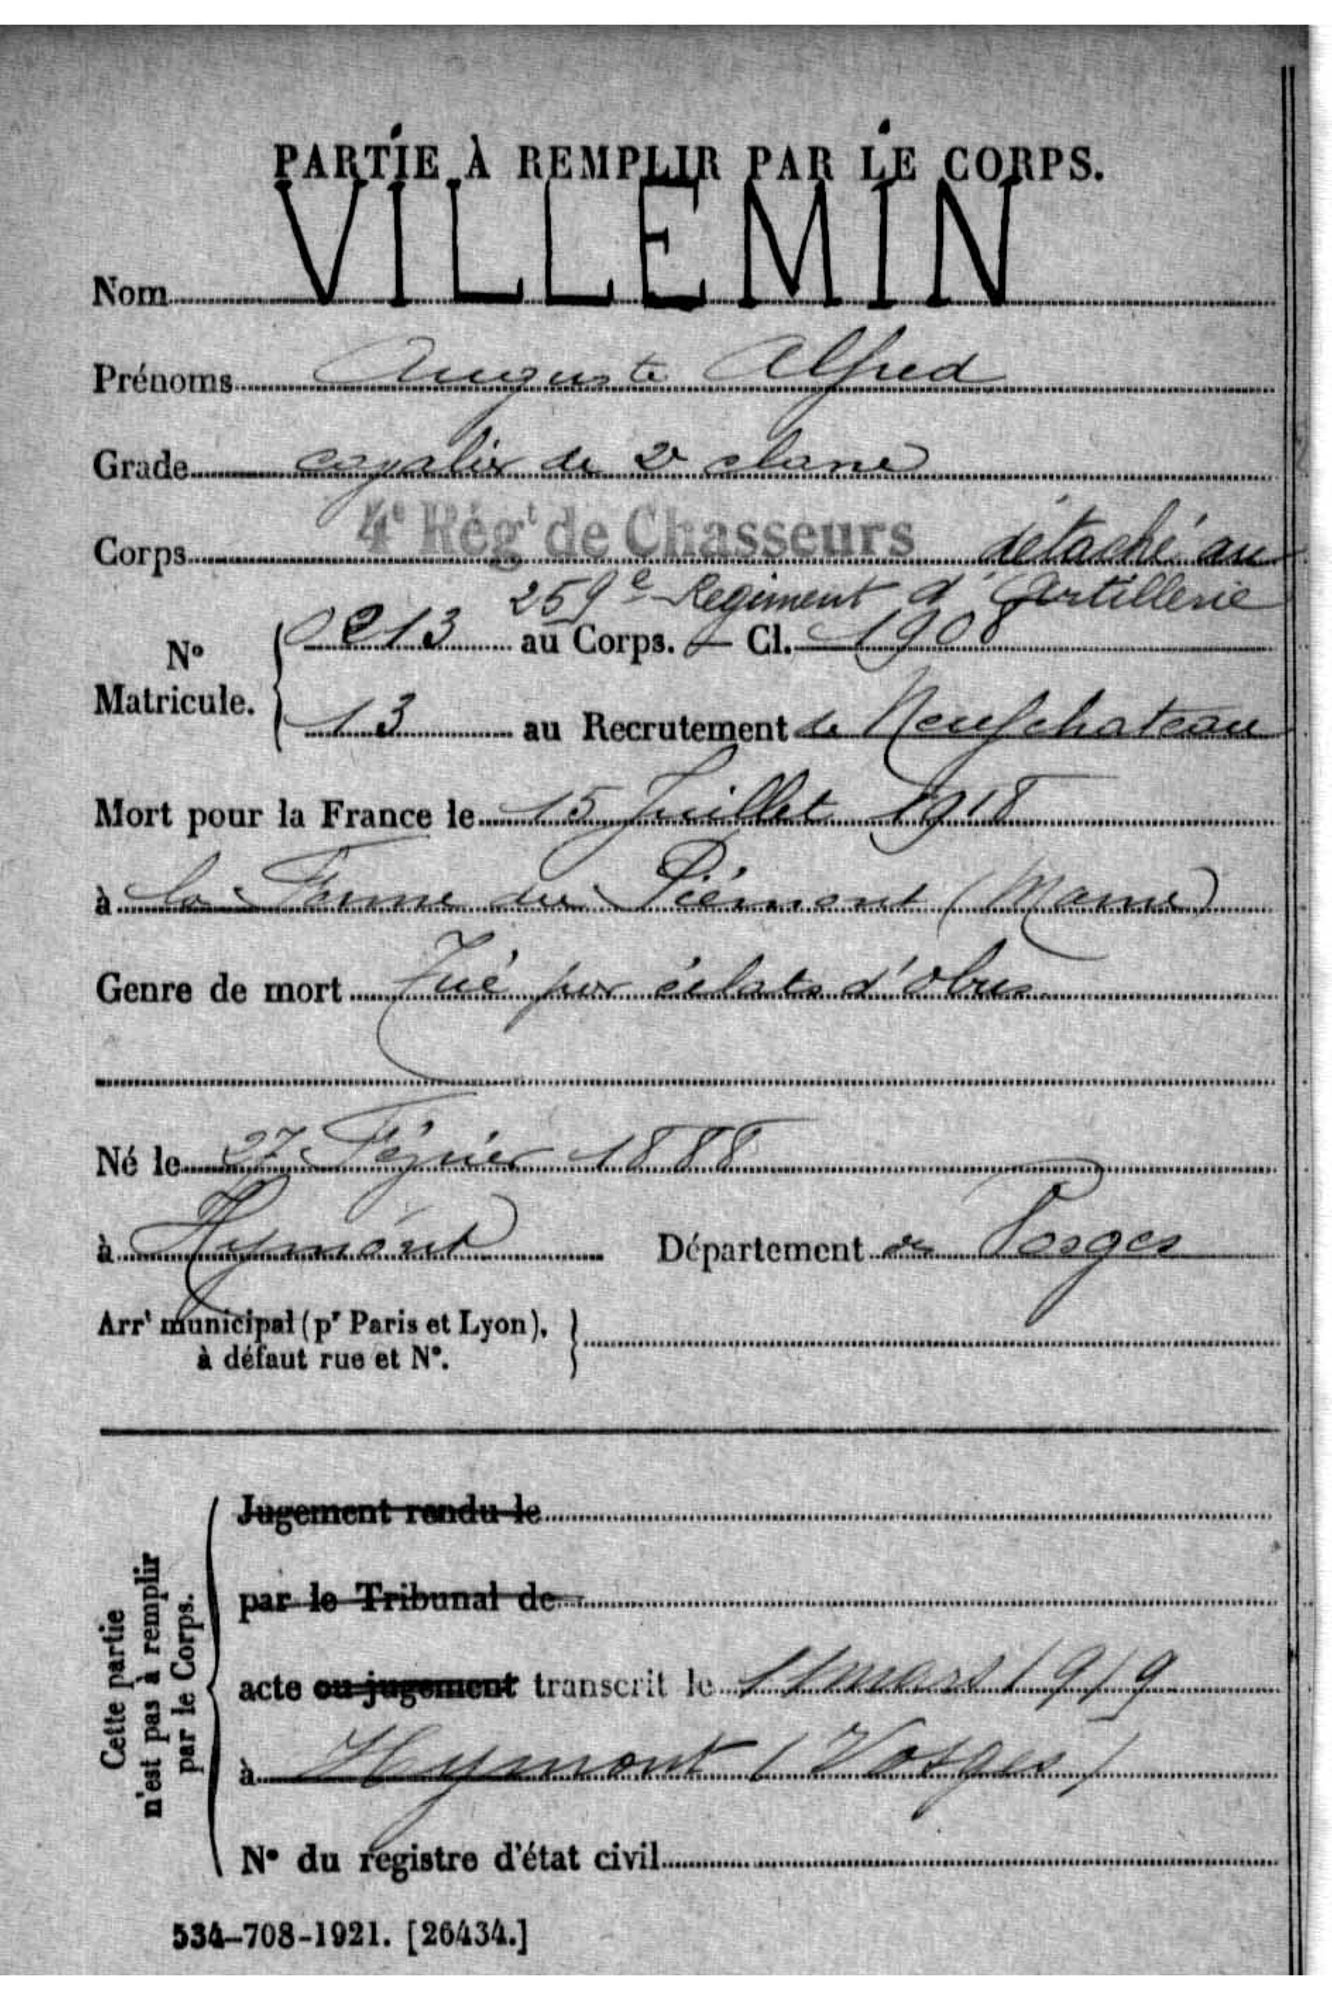 PARTIE À REMPLIR PAR LE CORPS.
Nom VILLEMIN
Prénoms Auguste Alfred
Grade cavalier de 2e classe
Corps 4e Régt de Chasseurs détaché au
259e Régiment d'Artillerie
No Matricule. 0213 au Corps. — Cl. 1908
13 au Recrutement de Neufchateau
Mort pour la France le 15 Juillet 1918
à la Ferme du Piémont (Marne)
Genre de mort Tué par éclats d'obus
Né le 27 Février 1888
à Hymont Département des Vosges
Arrt municipal (pr Paris et Lyon),
à défaut rue et No.
Cette partie
n'est pas à remplir
par le Corps.
Jugement rendu le
par le Tribunal de
acte ou jugement transcrit le 11 mars 1919
à Hymont (Vosges)
No du registre d'état civil
534-708-1921. [26434.]